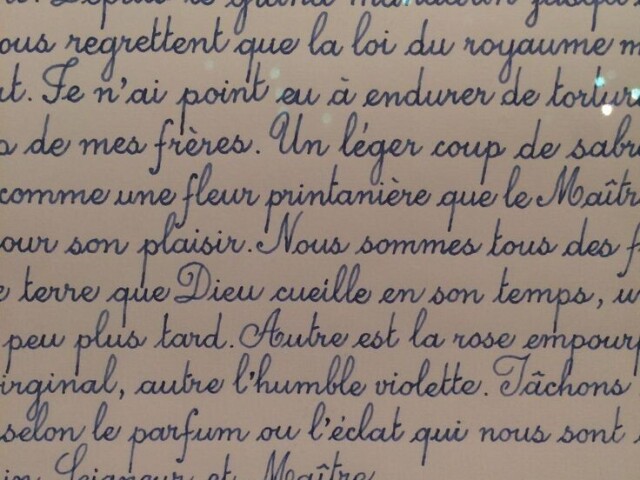 Depuis le grand mandarin jusqu
ous regrettent que la loi du royaume m
t. Je n'ai point eu à endurer de tortur
s de mes frères. Un léger coup de sabr
comme une fleur printanière que le Maîtr
our son plaisir. Nous sommes tous des f
e terre que Dieu cueille en son temps, u
peu plus tard. Autre est la rose empourp
irginal, autre l'humble violette. Tâchons
selon le parfum ou l'éclat qui nous sont
in Seigneur et Maître